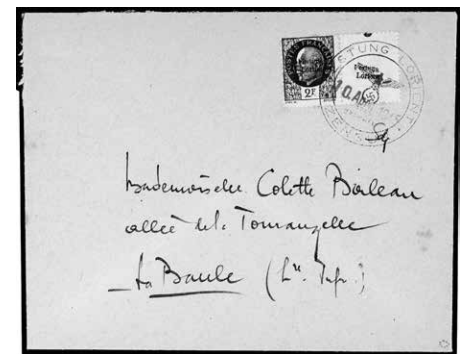 FESTUNG LORIENT
Festung
Lorient
2F
Mademoiselle Colette Boileau
allée de la Tourangelle
La Baule (Lre. Infre.)